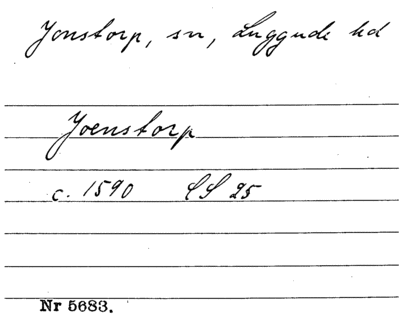 Jonstorp, sn, Luggude hd
Joenstorp
c. 1590 LS 25
Nr 5683.